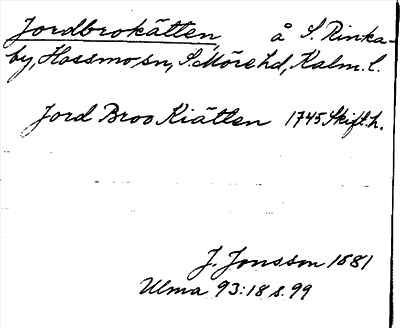 Jordbrokätten, å S. Rinka-
by, Hossmo sn, S. Möre hd, Kalm. l.
Jord Broo Kiätten 1745 Skift.h.
J. Jonsson 1881
Ulma 93:18 s. 99